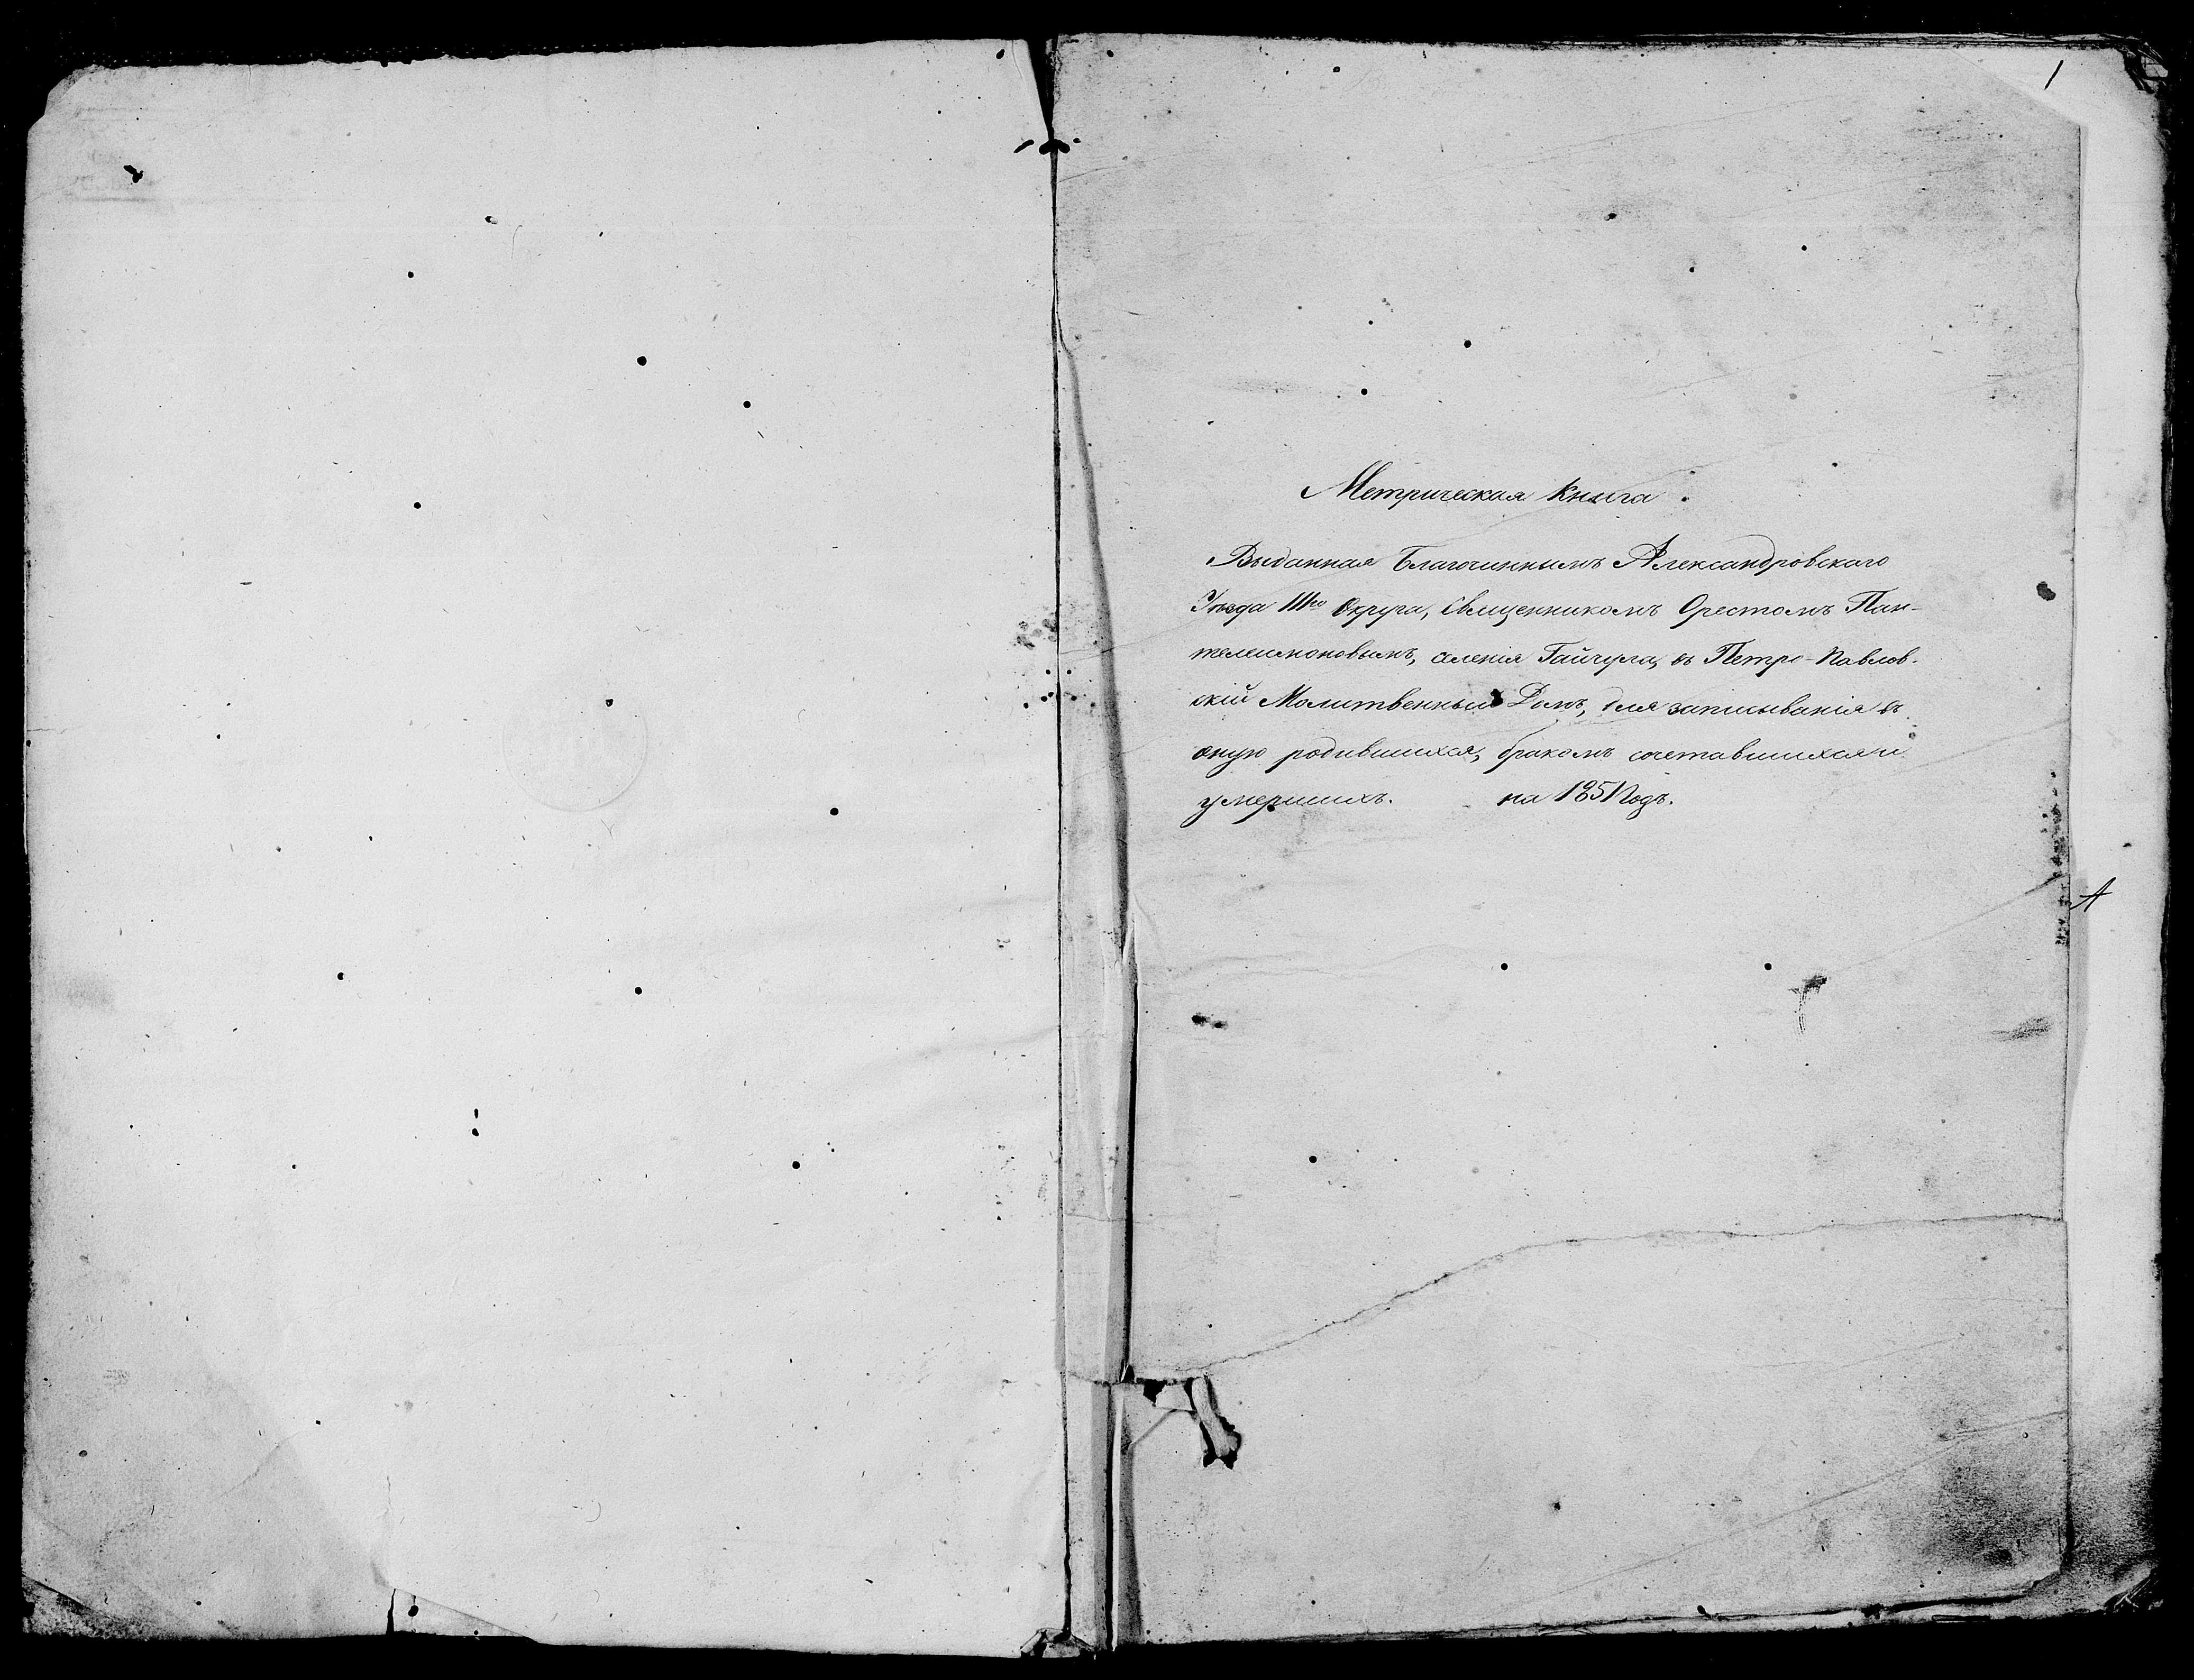 1
Метрическая Книга.
Выданная Благочиннымъ Александровскаго
Уѣзда III го Округа, Священникомъ Орестомъ Пан-
телеимоновымъ, селенія Гайчула, въ Петро-Павлов-
скій Молитвенный Домъ, для записыванія въ
оную родившихся, бракомъ сочетавшихся и
умершихъ. на 1851 Годъ.